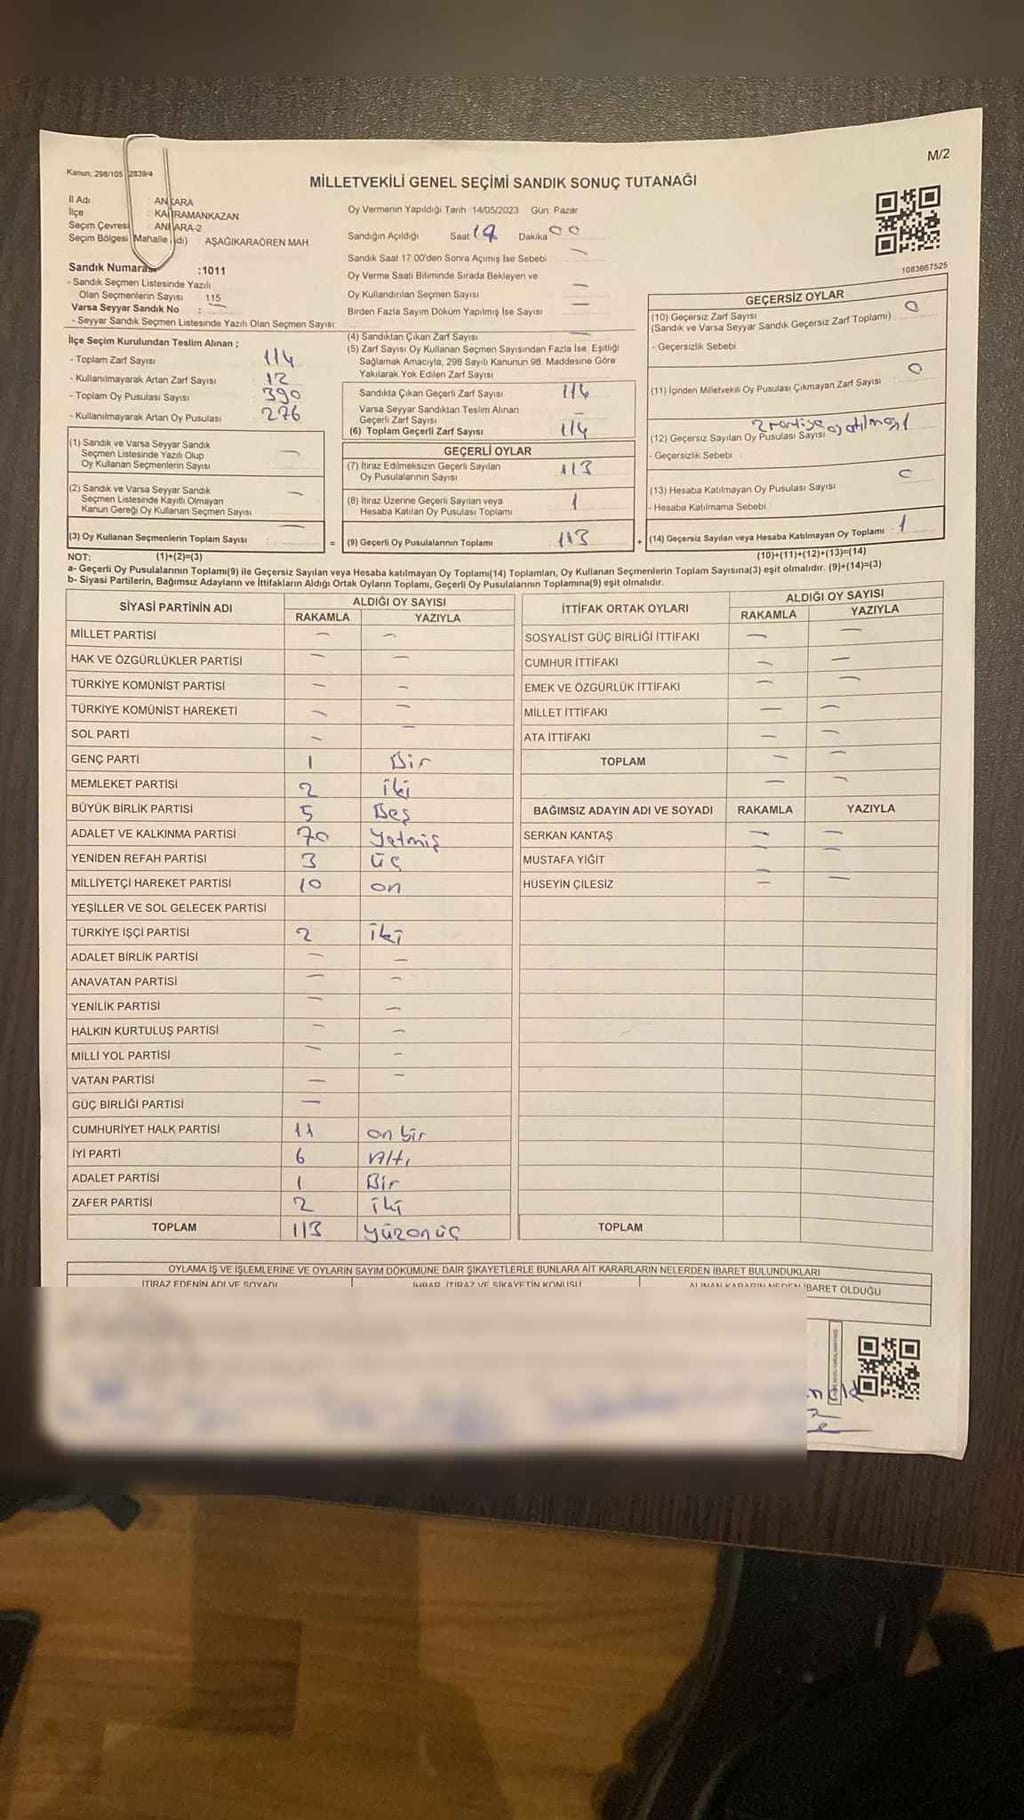 M/2
Kanun; 298/105 2839/4
MİLLETVEKİLİ GENEL SEÇİMİ SANDIK SONUÇ TUTANAĞI
İl Adı : ANKARA
İlçe : KAHRAMANKAZAN
Seçim Çevresi : ANKARA-2
Seçim Bölgesi (Mahalle Adı) : AŞAĞIKARAÖREN MAH
Sandık Numarası :1011
- Sandık Seçmen Listesinde Yazılı
Olan Seçmenlerin Sayısı : 115
Varsa Seyyar Sandık No : —
- Seyyar Sandık Seçmen Listesinde Yazılı Olan Seçmen Sayısı
Oy Vermenin Yapıldığı Tarih 14/05/2023 Gün Pazar
Sandığın Açıldığı Saat 17 Dakika 00
Sandık Saat 17 00'den Sonra Açımış İse Sebebi —
Oy Verme Saati Bitiminde Sırada Bekleyen ve
Oy Kullandırılan Seçmen Sayısı —
Birden Fazla Sayım Döküm Yapılmış İse Sayısı —
1083667525
İlçe Seçim Kurulundan Teslim Alınan ;
- Toplam Zarf Sayısı 114
- Kullanılmayarak Artan Zarf Sayısı 12
- Toplam Oy Pusulası Sayısı 390
- Kullanılmayarak Artan Oy Pusulası 276
(1) Sandık ve Varsa Seyyar Sandık
Seçmen Listesinde Yazılı Olup
Oy Kullanan Seçmenlerin Sayısı —
(2) Sandık ve Varsa Seyyar Sandık
Seçmen Listesinde Kayıtlı Olmayan
Kanun Gereği Oy Kullanan Seçmen Sayısı —
(3) Oy Kullanan Seçmenlerin Toplam Sayısı —
(4) Sandıktan Çıkan Zarf Sayısı —
(5) Zarf Sayısı Oy Kullanan Seçmen Sayısından Fazla İse, Eşitliği
Sağlamak Amacıyla, 298 Sayılı Kanunun 98. Maddesine Göre
Yakılarak Yok Edilen Zarf Sayısı
Sandıkta Çıkan Geçerli Zarf Sayısı 114
Varsa Seyyar Sandıktan Teslim Alınan
Geçerli Zarf Sayısı —
(6) Toplam Geçerli Zarf Sayısı 114
GEÇERLİ OYLAR
(7) İtiraz Edilmeksizin Geçerli Sayılan
Oy Pusulalarının Sayısı 113
(8) İtiraz Üzerine Geçerli Sayılan veya
Hesaba Katılan Oy Pusulası Toplamı 1
= (9) Geçerli Oy Pusulalarının Toplamı 113
GEÇERSİZ OYLAR
(10) Geçersiz Zarf Sayısı 0
(Sandık ve Varsa Seyyar Sandık Geçersiz Zarf Toplamı)
- Geçersizlik Sebebi
(11) İçinden Milletvekili Oy Pusulası Çıkmayan Zarf Sayısı 0
2 Partiye oy atılması
(12) Geçersiz Sayılan Oy Pusulası Sayısı 1
- Geçersizlik Sebebi :
(13) Hesaba Katılmayan Oy Pusulası Sayısı
- Hesaba Katılmama Sebebi
+ (14) Geçersiz Sayılan veya Hesaba Katılmayan Oy Toplamı 1
NOT: (1)+(2)=(3)
(10)+(11)+(12)+(13)=(14)
a- Geçerli Oy Pusulalarının Toplamı(9) ile Geçersiz Sayılan veya Hesaba katılmayan Oy Toplamı(14) Toplamları, Oy Kullanan Seçmenlerin Toplam Sayısına(3) eşit olmalıdır. (9)+(14)=(3)
b- Siyasi Partilerin, Bağımsız Adayların ve İttifakların Aldığı Ortak Oyların Toplamı, Geçerli Oy Pusulalarının Toplamına(9) eşit olmalıdır.
SİYASİ PARTİNİN ADI ALDIĞI OY SAYISI
RAKAMLA YAZIYLA
MİLLET PARTİSİ — —
HAK VE ÖZGÜRLÜKLER PARTİSİ — —
TÜRKİYE KOMÜNİST PARTİSİ — —
TÜRKİYE KOMÜNİST HAREKETİ — —
SOL PARTİ — —
GENÇ PARTİ 1 Bir
MEMLEKET PARTİSİ 2 iki
BÜYÜK BİRLİK PARTİSİ 5 Beş
ADALET VE KALKINMA PARTİSİ 70 yetmiş
YENİDEN REFAH PARTİSİ 3 üç
MİLLİYETÇİ HAREKET PARTİSİ 10 on
YEŞİLLER VE SOL GELECEK PARTİSİ
TÜRKİYE İŞÇİ PARTİSİ 2 iki
ADALET BİRLİK PARTİSİ — —
ANAVATAN PARTİSİ — —
YENİLİK PARTİSİ — —
HALKIN KURTULUŞ PARTİSİ — —
MİLLİ YOL PARTİSİ — —
VATAN PARTİSİ — —
GÜÇ BİRLİĞİ PARTİSİ —
CUMHURİYET HALK PARTİSİ 11 on bir
İYİ PARTİ 6 Altı
ADALET PARTİSİ 1 Bir
ZAFER PARTİSİ 2 iki
TOPLAM 113 yüzonüç
İTTİFAK ORTAK OYLARI ALDIĞI OY SAYISI
RAKAMLA YAZIYLA
SOSYALİST GÜÇ BİRLİĞİ İTTİFAKI — —
CUMHUR İTTİFAKI — —
EMEK VE ÖZGÜRLÜK İTTİFAKI — —
MİLLET İTTİFAKI — —
ATA İTTİFAKI — —
TOPLAM — —
BAĞIMSIZ ADAYIN ADI VE SOYADI RAKAMLA YAZIYLA
SERKAN KANTAŞ — —
MUSTAFA YİĞİT — —
HÜSEYİN ÇİLESİZ — —
TOPLAM
OYLAMA İŞ VE İŞLEMLERİNE VE OYLARIN SAYIM DÖKÜMÜNE DAİR ŞİKAYETLERLE BUNLARA AİT KARARLARIN NELERDEN İBARET BULUNDUKLARI
İTİRAZ EDENİN ADI VE SOYADI İHBAR, İTİRAZ VE ŞİKAYETİN KONUSU ALINAN KARARIN NEDEN İBARET OLDUĞU